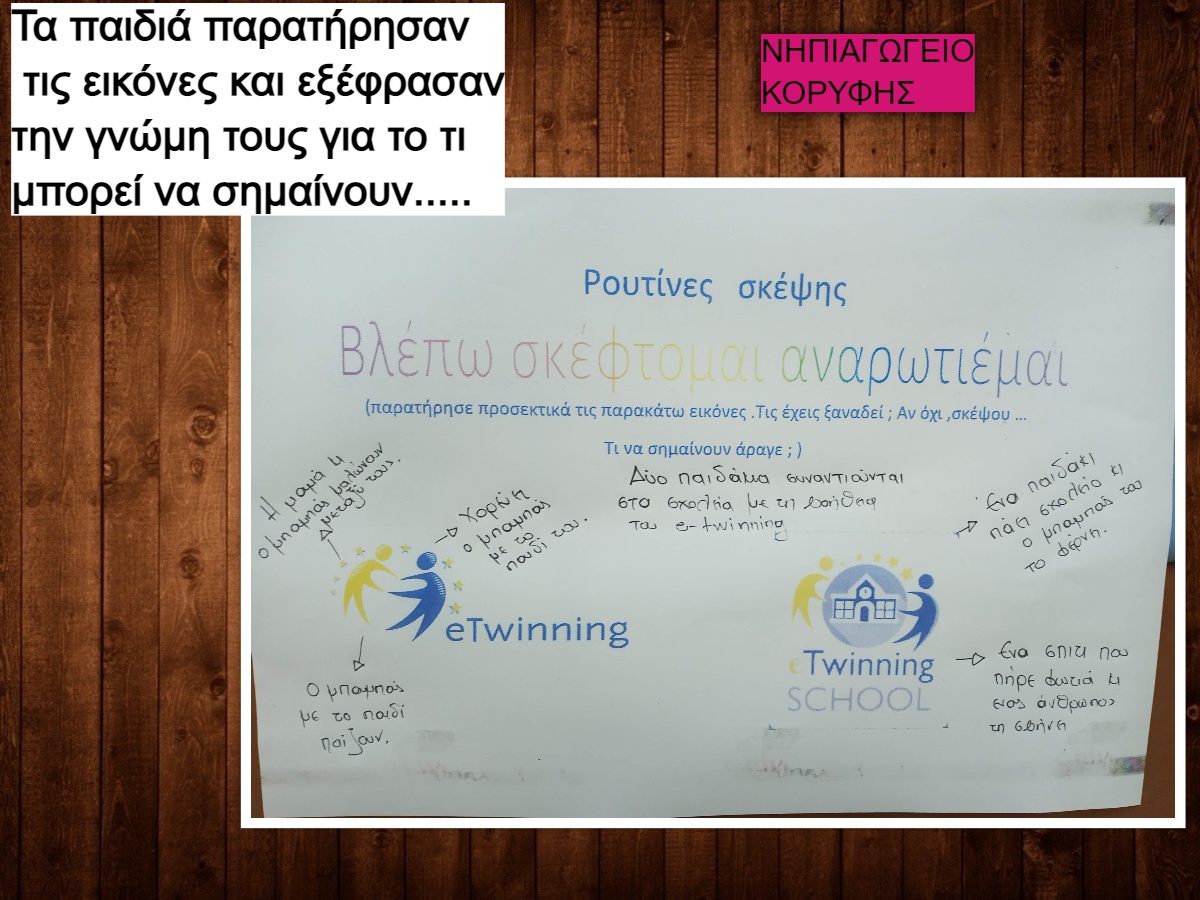 Τα παιδιά παρατήρησαν
τις εικόνες και εξέφρασαν
την γνώμη τους για το τι
μπορεί να σημαίνουν.....
ΝΗΠΙΑΓΩΓΕΙΟ
ΚΟΡΥΦΗΣ
Ρουτίνες σκέψης
Βλέπω σκέφτομαι αναρωτιέμαι
(παρατήρησε προσεκτικά τις παρακάτω εικόνες .Τις έχεις ξαναδεί ; Αν όχι ,σκέψου ...
Τι να σημαίνουν άραγε ; )
Η μαμά κι
ο μπαμπάς μαλώνουν
μεταξύ τους.
Χορεύει
ο μπαμπάς
με το
παιδί του.
Δύο παιδάκια συναντιούνται
στα σχολεία με τη βοήθεια
του e-twinning
Ένα παιδάκι
πάει σχολείο κι
ο μπαμπάς του
το φέρνει.
eTwinning
Ο μπαμπάς
με το παιδί
παίζουν.
eTwinning
SCHOOL
Ένα σπίτι που
πήρε φωτιά κι
ένας άνθρωπος
τη σβήνει